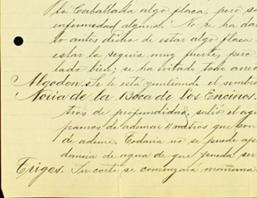 la Caballada algo flaca, pero sin
enfermedad alguna. No se ha da
lo antes dicho de estar algo flaca
estar la seguia muy fuerte, pero
lado bien; se ha evitado toda
Algodon. Se le está quitando el
Noria de la Boca de los Encinos.
tros de profundidad, salió el agu
pramos de ademar 8 metros que son
de ademe. Todavía no se puede
dancia de agua de que pueda ser
Trigos. Su corte se comenzará mañana